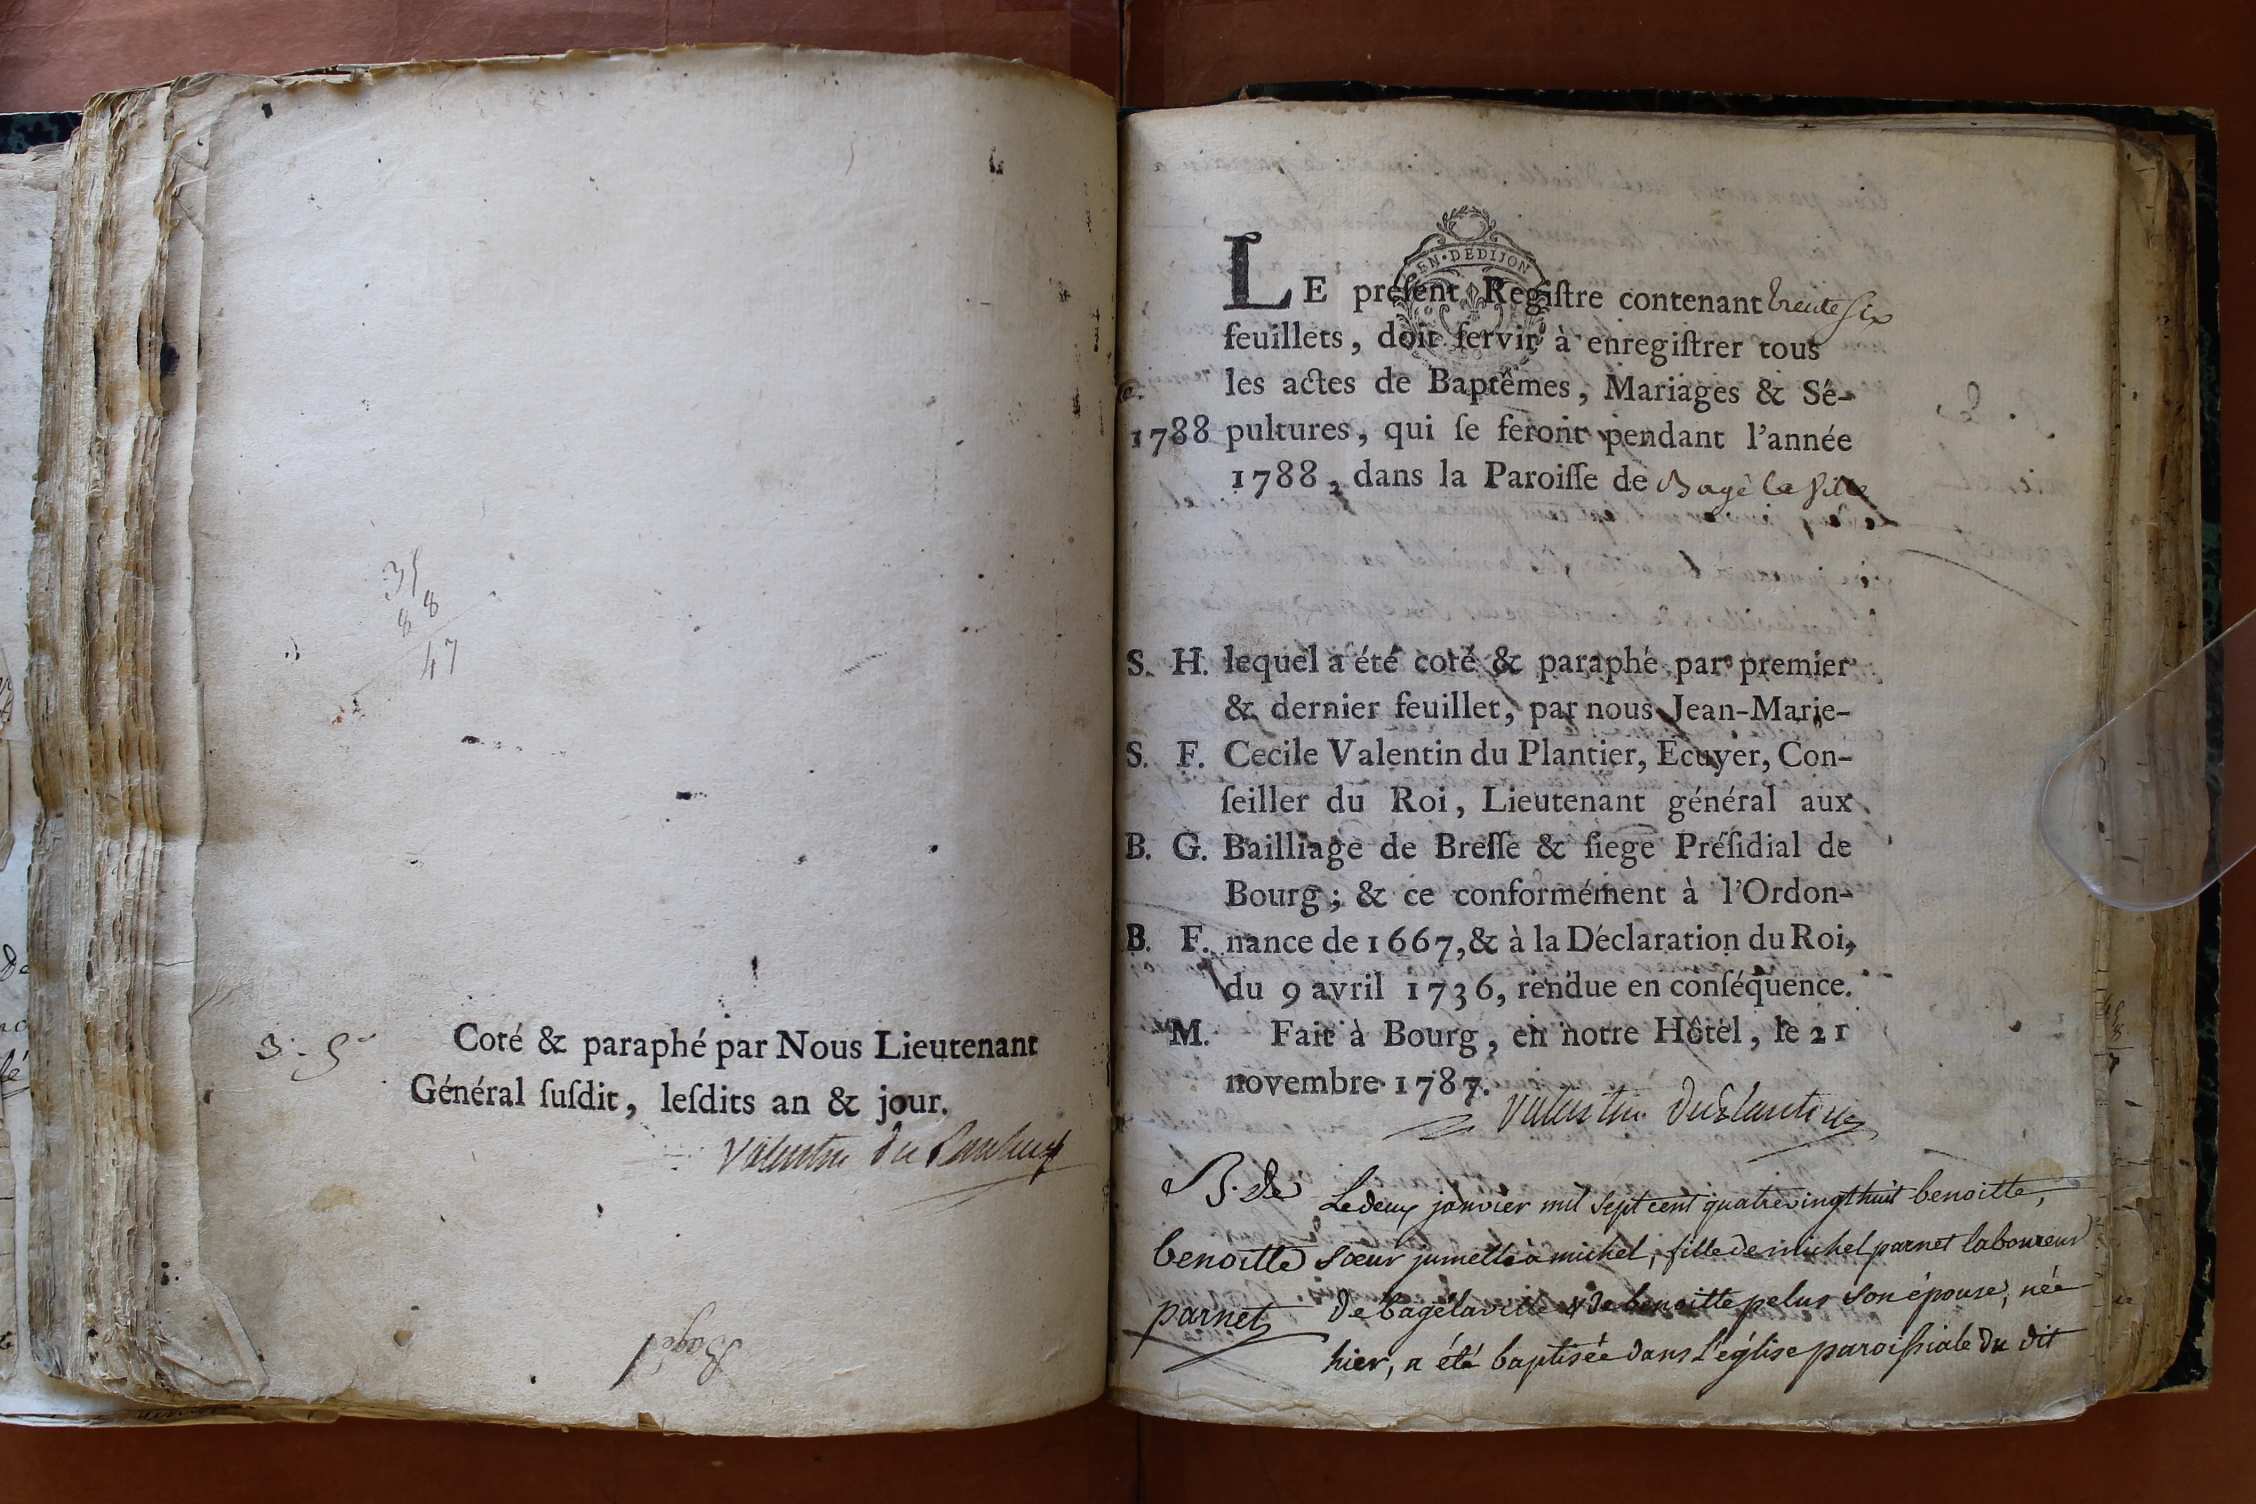 35
88
47
3. 5
Coté & paraphé par Nous Lieutenant
Général ſuſdit, leſdits an & jour.
Valentin du Plantier
Bagé
EN·DEDIJON
LE preſent Regiſtre contenant trente Six
feuillets, doit ſervir à enregiſtrer tous
les actes de Baptêmes, Mariages & Sé-
1788 pultures, qui ſe feront pendant l'année
1788, dans la Paroiſſe de Bagé la Ville
S. H. lequel a été coté & paraphé par premier
& dernier feuillet, par nous Jean-Marie-
S. F. Cecile Valentin du Plantier, Ecuyer, Con-
ſeiller du Roi, Lieutenant général aux
B. G. Bailliage de Breſſe & ſiege Préſidial de
Bourg; & ce conformément à l'Ordon-
B. F. nance de 1667, & à la Déclaration du Roi,
du 9 avril 1736, rendue en conſéquence.
M. Fait à Bourg, en notre Hôtel, le 21
novembre 1787.
Valentin duPlantier
B. de
benoitte
parnet
Le deux janvier mil sept cent quatre vingt huit benoitte,
sœur jumelle à michel, fille de michel parnet laboureur
de bagélaville & de benoitte pelus son épouse, née
hier, a été baptisée dans l'église paroissiale du dit